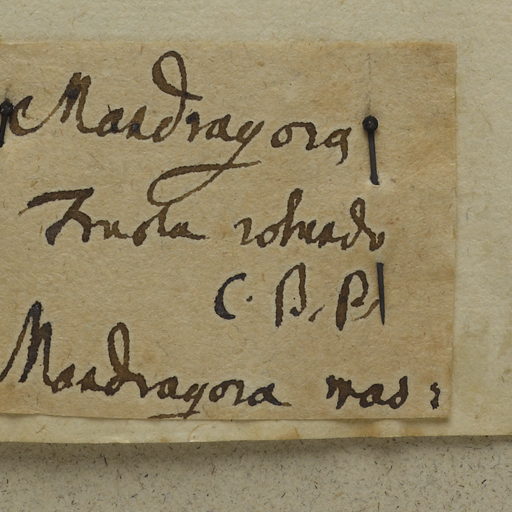 Mandragora
Fructu rotundo
C. B. P.
Mandragora mas: